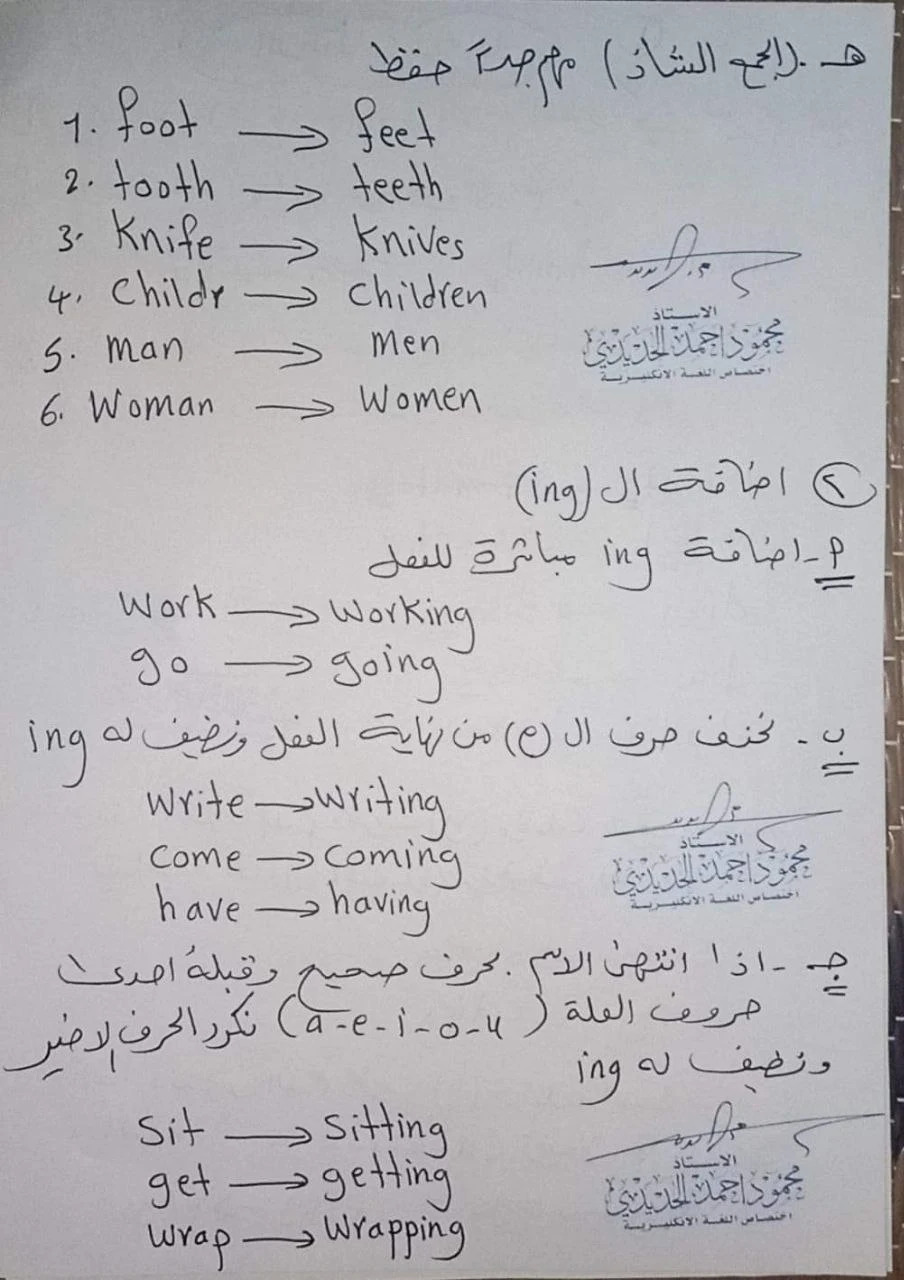 هـ - (الجمع الشاذ) مهم جداً حفظ
1. foot → feet
2. tooth → teeth
3. Knife → Knives
4. Childr → Children
5. man → Men
6. Woman → Women
الاستاذ
محمود احمد الحديدي
اختصاص اللغة الانكليزية
② اضافة ال (ing)
أ- اضافة ing مباشرة للفعل
Work → Working
go → going
ب- نحذف حرف ال (e) من نهاية الفعل ونضيف له ing
Write → Writing
Come → Coming
have → having
الاستاذ
محمود احمد الحديدي
اختصاص اللغة الانكليزية
جـ - اذا انتهى الاسم بحرف صحيح وقبله احدى
حروف العلة (a-e-i-o-u) نكرر الحرف الاخير
ونضيف له ing
Sit → Sitting
get → getting
Wrap → Wrapping
الاستاذ
محمود احمد الحديدي
اختصاص اللغة الانكليزية